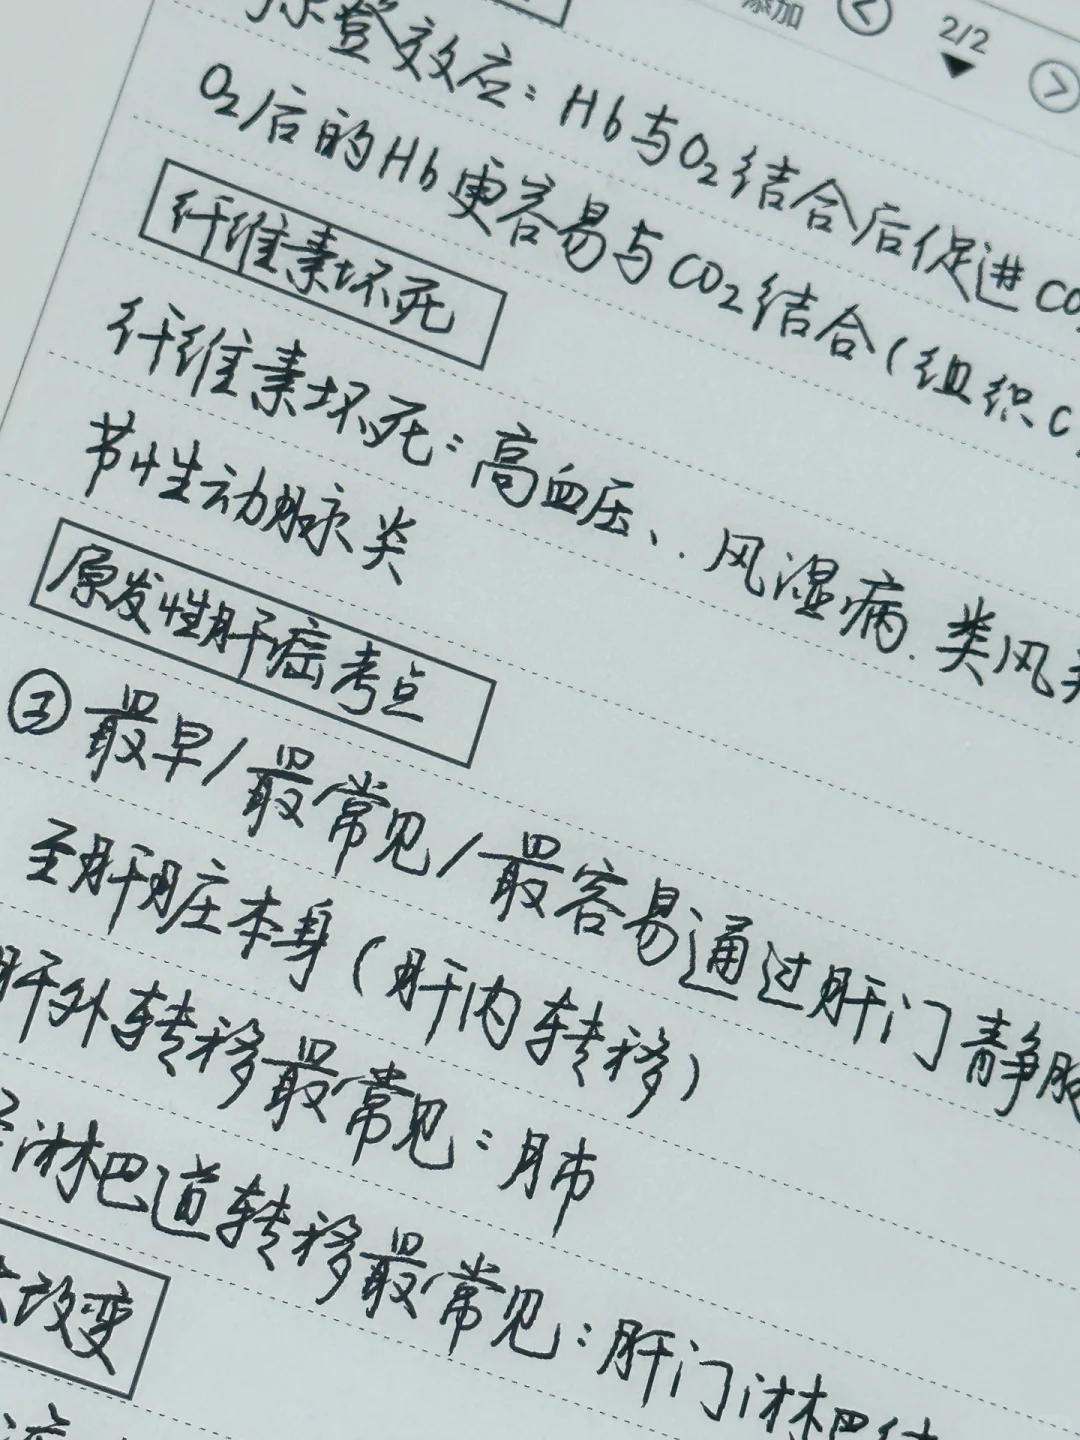 添加 2/2
尔登效应：Hb与O₂结合后促进CO₂
O₂后的Hb更容易与CO₂结合(组织C
纤维素坏死
纤维素坏死：高血压、风湿病、类风
节性动脉类
原发性肝癌考点
③最早/最常见/最容易通过肝门静脉
至肝脏本身(肝内转移)
肝外转移最常见：肺
淋巴道转移最常见：肝门淋巴结
改变